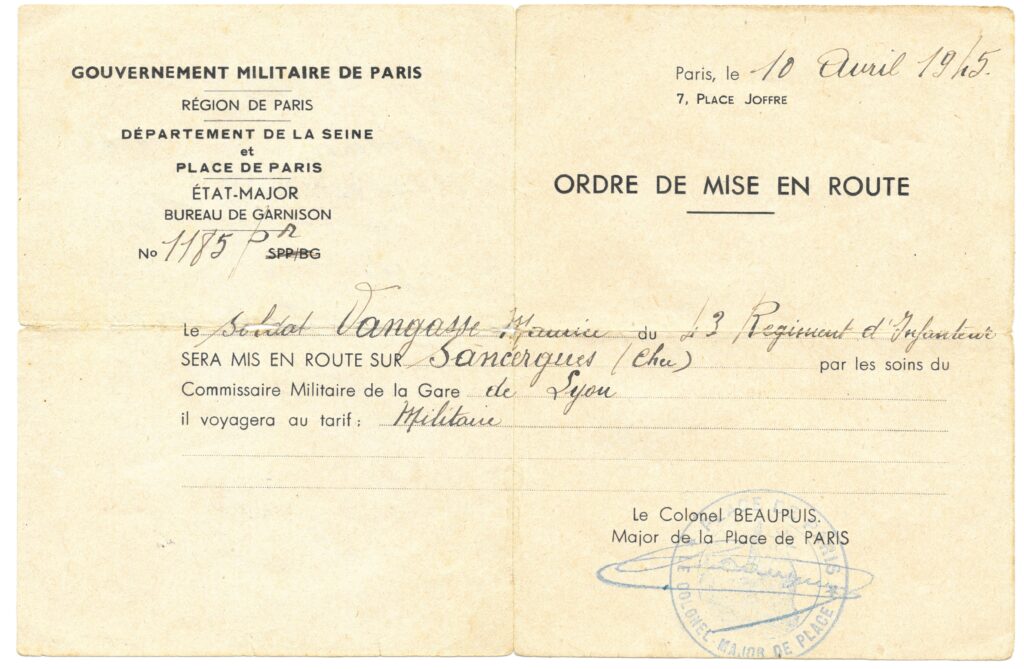 GOUVERNEMENT MILITAIRE DE PARIS
RÉGION DE PARIS
DÉPARTEMENT DE LA SEINE
et
PLACE DE PARIS
ÉTAT-MAJOR
BUREAU DE GARNISON
No 1185 SPP/BG
Paris, le 10 Avril 1945.
7, PLACE JOFFRE
ORDRE DE MISE EN ROUTE
Le Soldat Vangasse Maurice du 43 Regiment d'Infanterie
SERA MIS EN ROUTE SUR Sancergues (Cher) par les soins du
Commissaire Militaire de la Gare de Lyon
il voyagera au tarif : Militaire
Le Colonel BEAUPUIS.
Major de la Place de PARIS
PLACE DE PARIS
LE COLONEL MAJOR DE PLACE